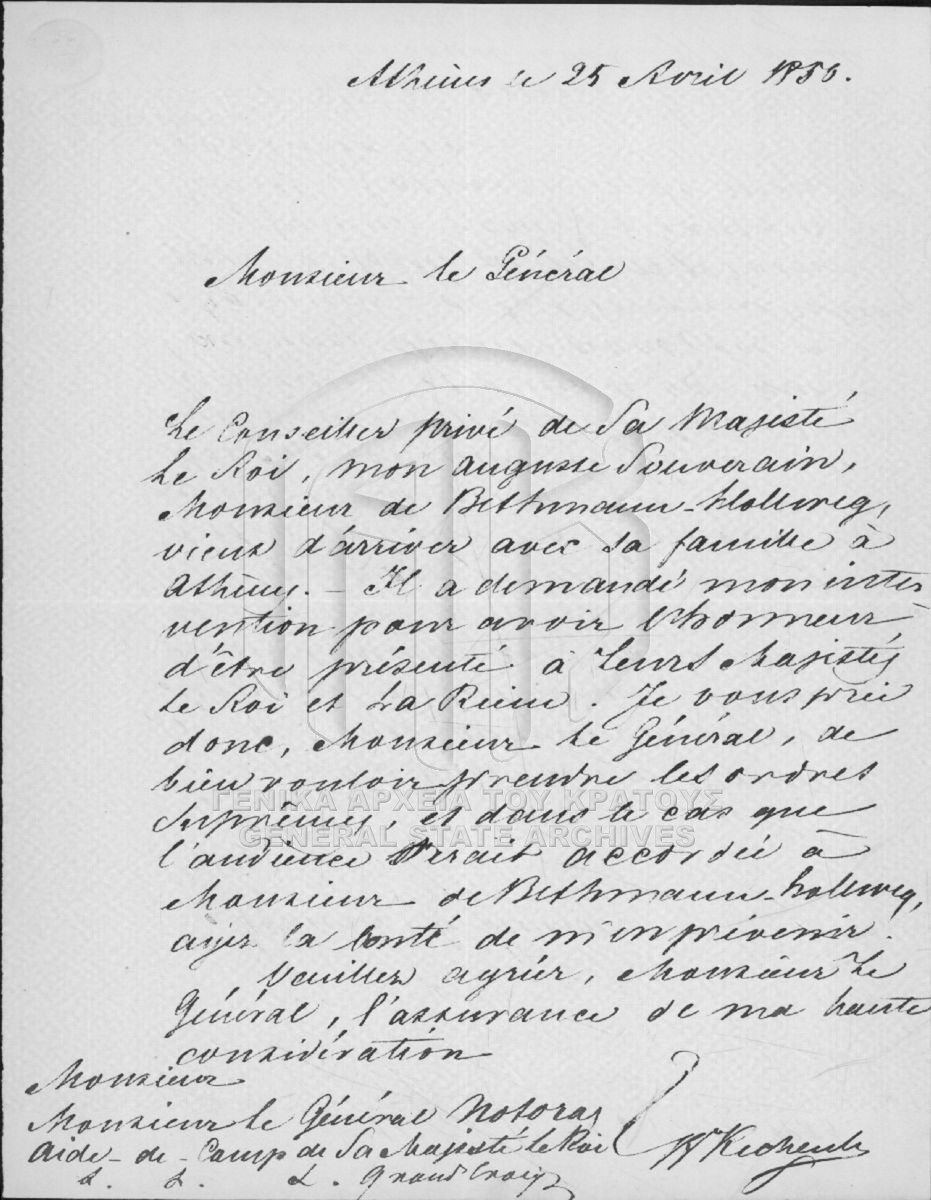 Athènes le 25 Avril 1856.
Monsieur le Général
Le Conseiller privé de Sa Majesté
Le Roi, mon auguste Souverain,
Monsieur de Bethmann-Hollweg,
vient d'arriver avec sa famille à
Athènes. - Il a demandé mon inter
vention pour avoir l'honneur
d'être présenté à Leurs Majestés
Le Roi et La Reine. Je vous prie
donc, Monsieur le Général, de
bien vouloir prendre les ordres
Suprêmes, et dans le cas que
l'audience serait accordée à
Monsieur de Bethmann-Hollweg,
ayez la bonté de m'en prévenir.
Veuillez agréer, Monsieur Le
Général, l'assurance de ma haute
considération
Monsieur
Monsieur le Général Notaras
Aide-de-Camp de Sa Majesté le Roi
L. L. L. Grand Croix
ΓΕΝΙΚΑ ΑΡΧΕΙΑ ΤΟΥ ΚΡΑΤΟΥΣ
GENERAL STATE ARCHIVES